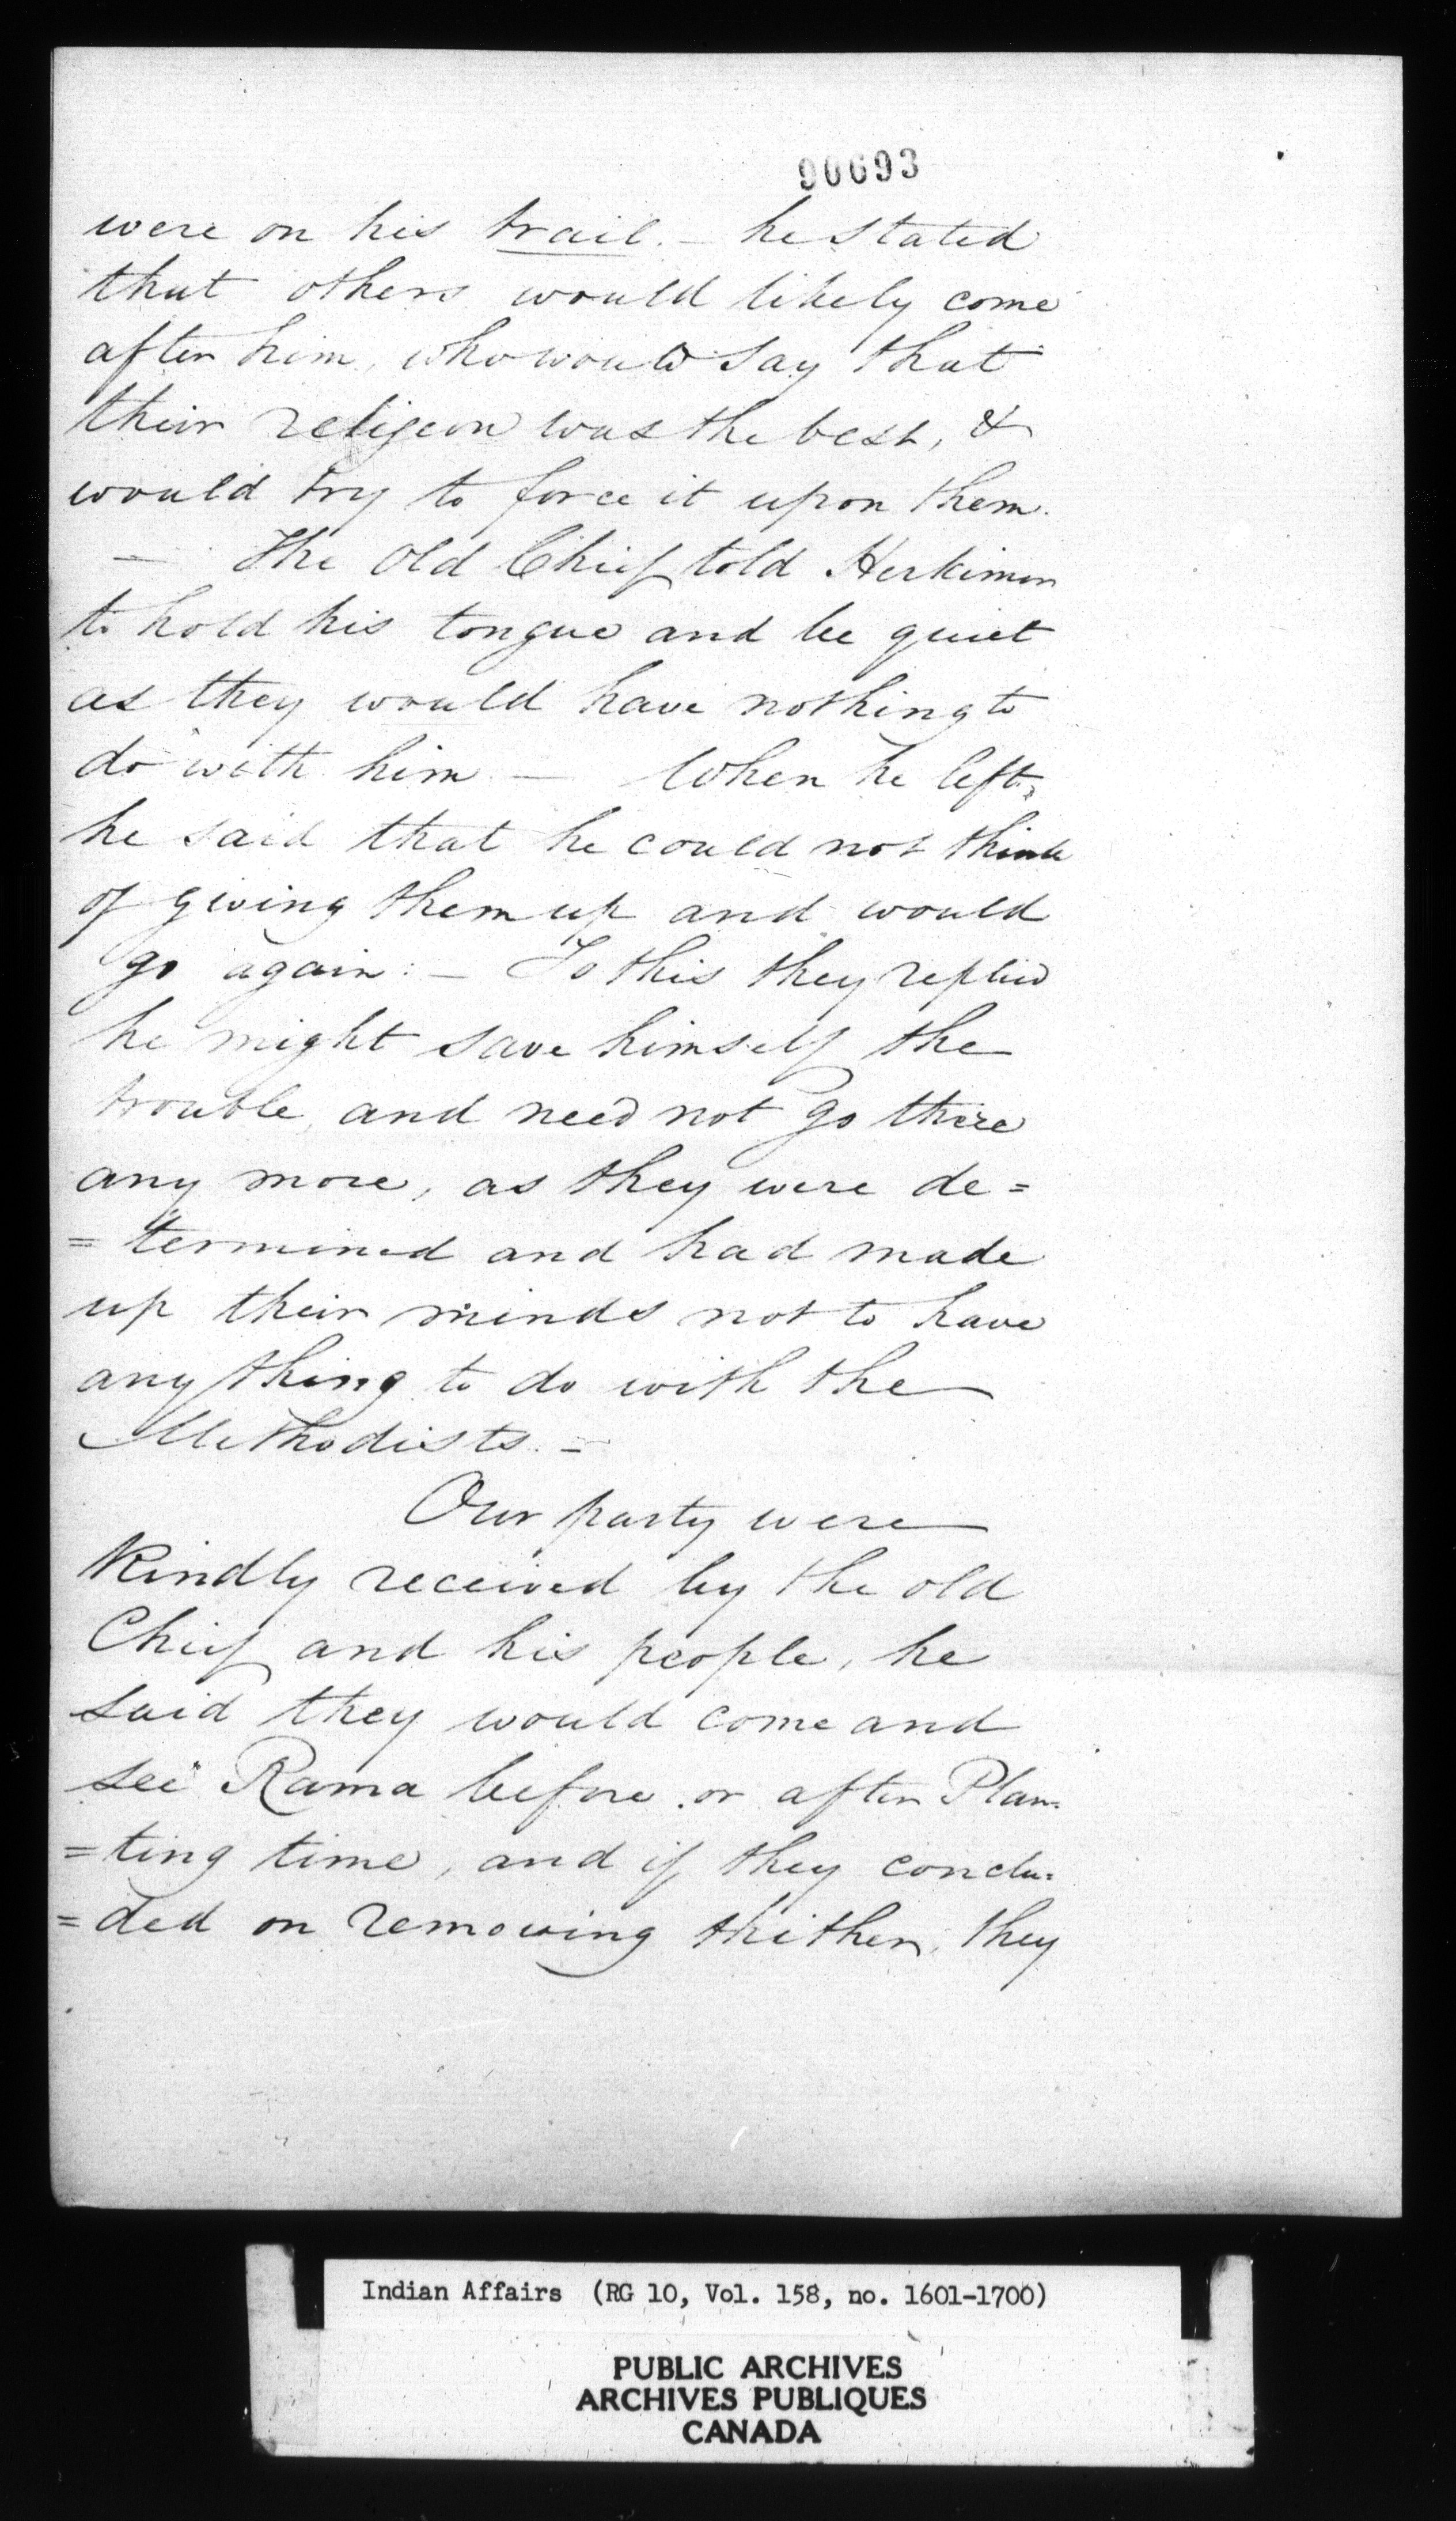 90693
were on his trail. – he stated
that others would likely come
after him, who would say that
their religeon was the best, &
would try to force it upon them.
– The Old Chief told Herkimer
to hold his tongue and be quiet
as they would have nothing to
do with him – When he left,
he said that he could not think
of giving them up and would
go again: – To this they replied
he might save himself the
trouble, and need not go there
any more, as they were de=
=termined and had made
up their minds not to have
any thing to do with the
Methodists. –
Our party were
Kindly received by the old
Chief and his people, he
said they would come and
see Rama before or after Plan=
=ting time, and if they conclu=
=ded on removing thither, they
Indian Affairs (RG 10, Vol. 158, no. 1601-1700)
PUBLIC ARCHIVES
ARCHIVES PUBLIQUES
CANADA